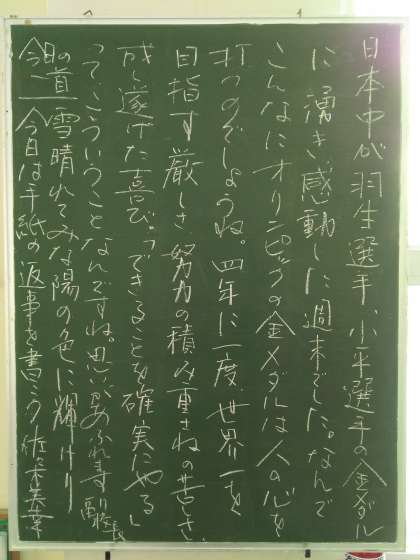 日本中が羽生選手、小平選手の金メダル
に湧き、感動した週末でした。なんで
こんなにオリンピックの金メダルは人の心を
打つのでしょうね。四年に一度、世界一を
目指す厳しさ、努力の積み重ねの苦しさ、
成し遂げた喜び。「できることを確実にやる」
ってこういうことなんですね。思いがあふれ
雪晴れてみな陽の色に輝けり
今日の一道 今日は手紙の返事を書こう 佐